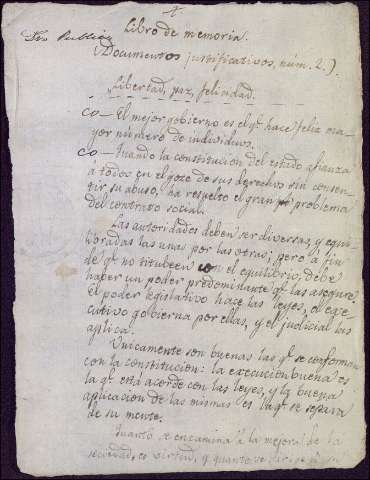 Libro de memoria.
(Documentos justificativos, núm. 2.)
Libertad, paz, felicidad.
CO— El mejor gobierno es el q.e hace feliz ma-
yor número de individuos.
CO— Cuando la constitucion del estado afianza
á todos en el goze de sus derechos sin consen-
tir su abuso, ha resuelto el gran problema
del contrato social.
Las autoridades deben ser diversas, y equili-
bradas las unas por las otras; pero á fin
de q.e no titubeen con el equilibrio, debe
haber un poder predominante q.e las asegure.
El poder legislativo hace las leyes, el eje-
cutivo gobierna por ellas, y el judicial las
aplica.
Unicamente son buenas las q.e se conforman
con la constitucion: la execucion buena es
la q.e está acorde con las leyes, y la buena
aplicacion de las mismas es la q.e se separa
de su mente.
Cuanto se encamina á la mejora de la
sociedad, es virtud, y quanto se dirige